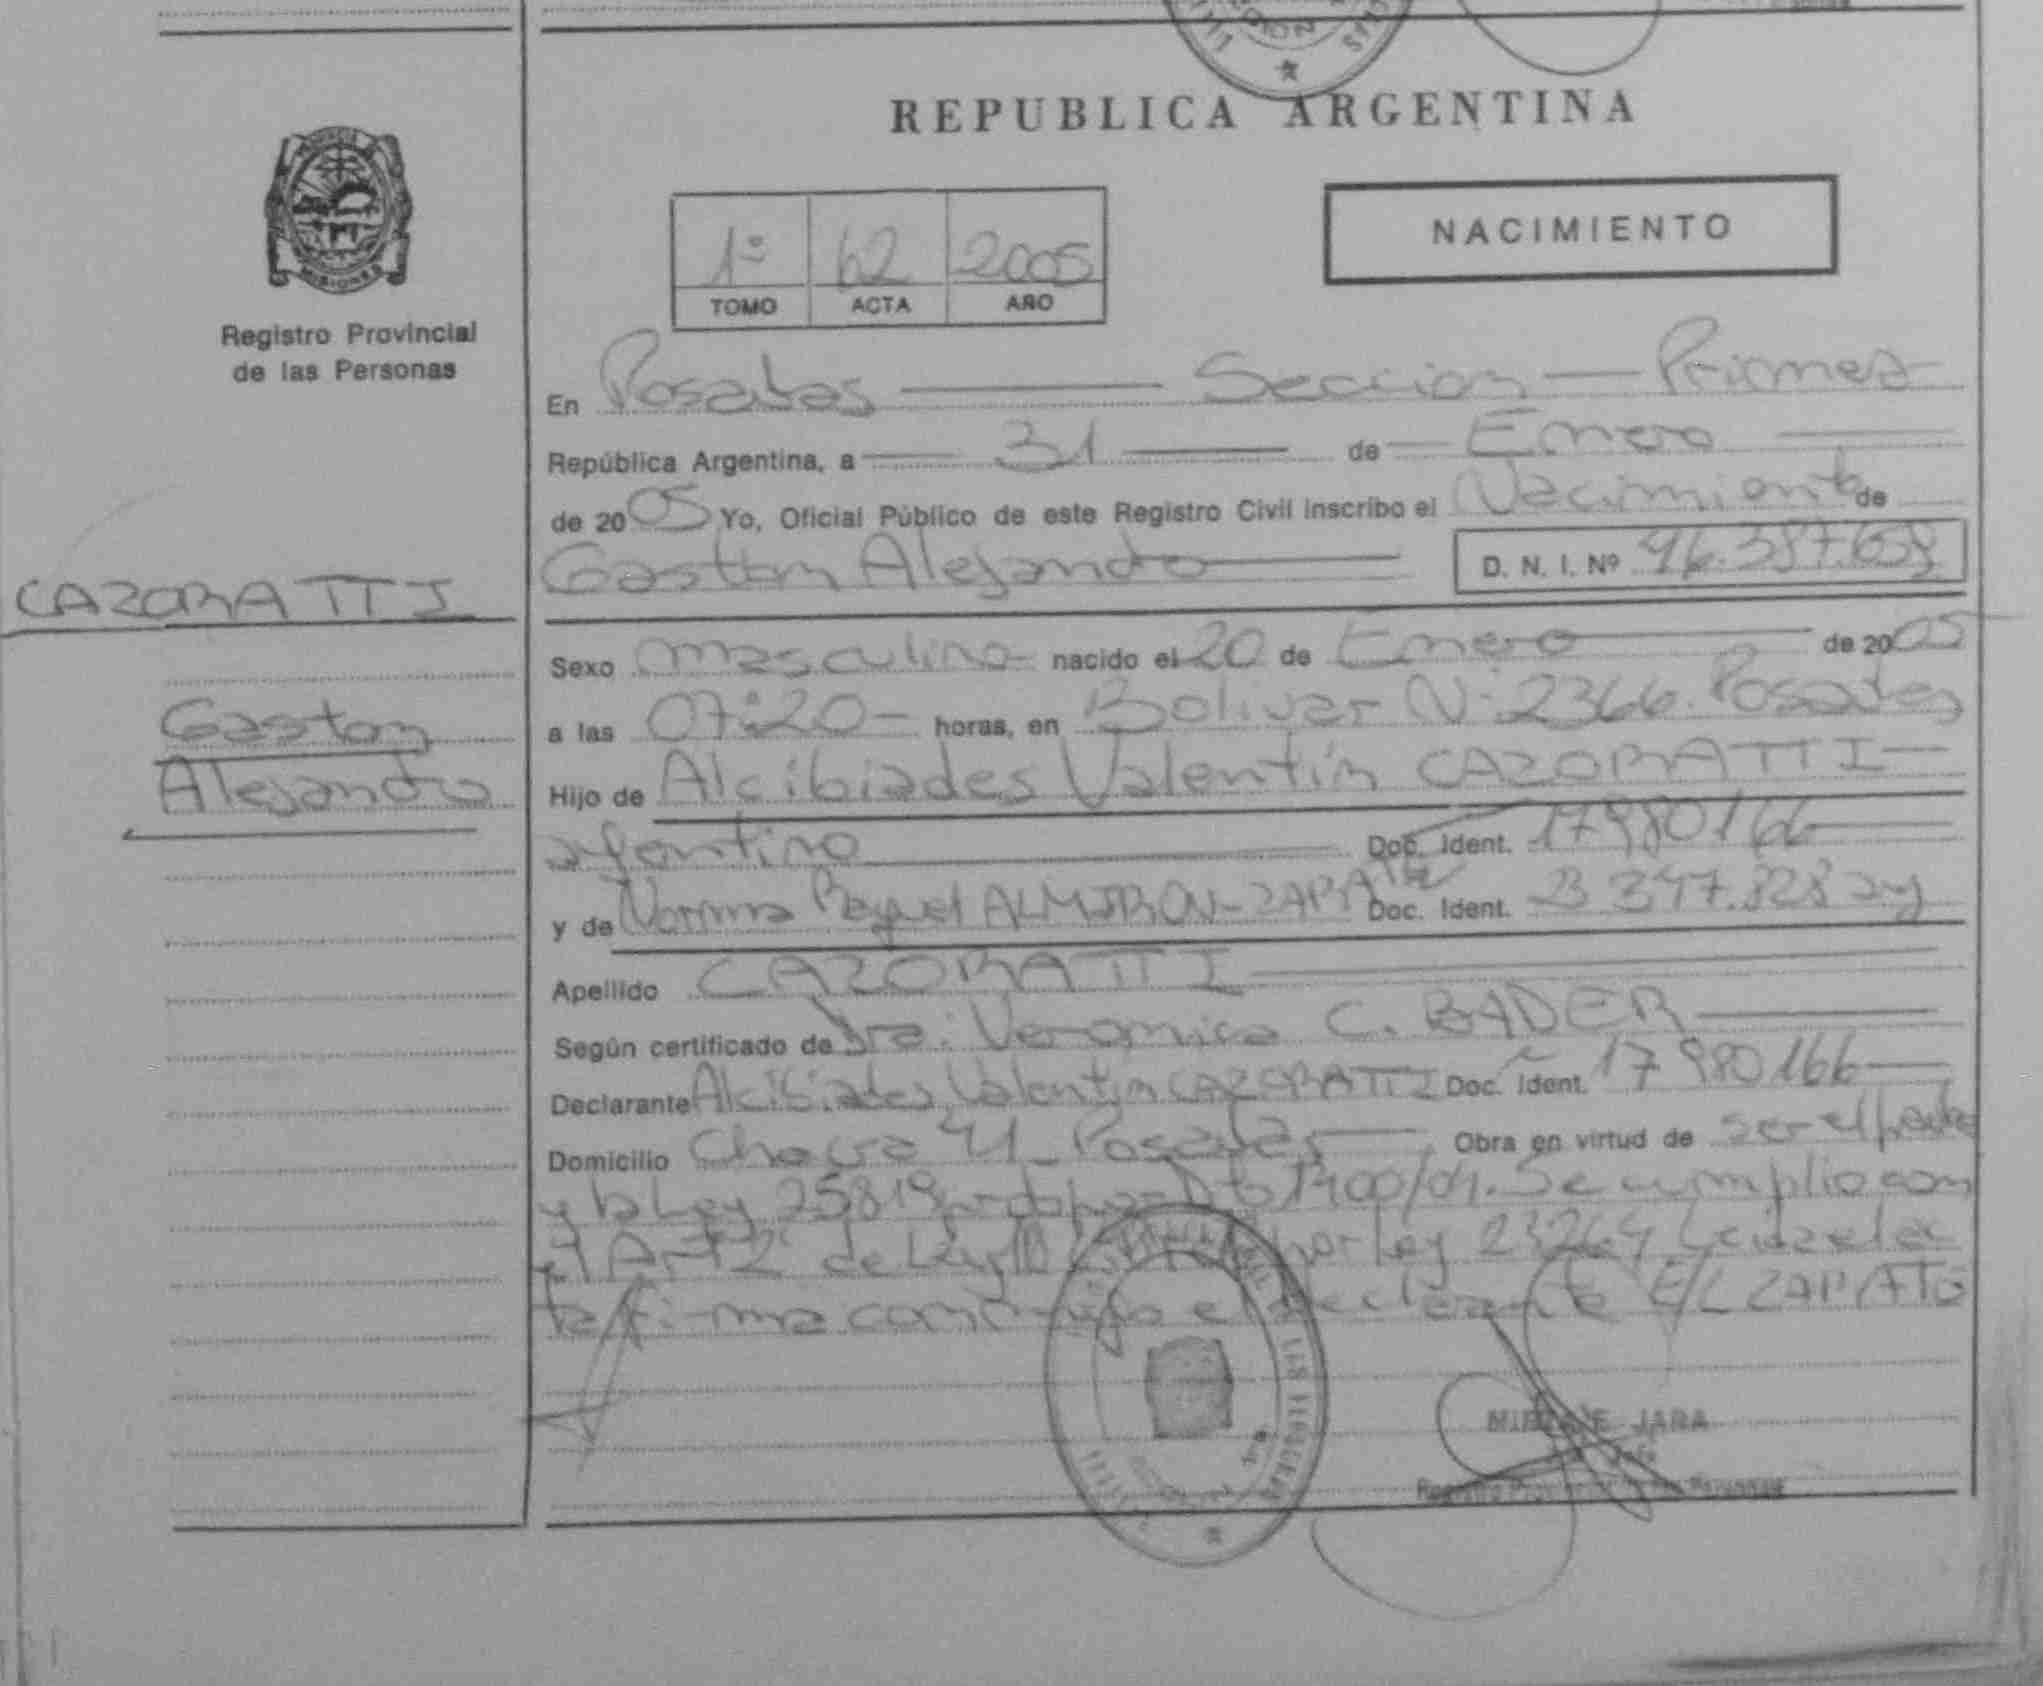 REPUBLICA ARGENTINA
NACIMIENTO
1º 62 2005
TOMO ACTA AÑO
MISIONES
Registro Provincial
de las Personas
En Posadas Seccion Primera
República Argentina, a 31 de Enero
de 2005 Yo, Oficial Público de este Registro Civil inscribo el Nacimiento de
Gaston Alejandro D. N. I. Nº
CAZORATTI
Gaston
Alejandro
Sexo masculino nacido el 20 de Enero de 2005
a las 07:20 horas, en Bolivar Nº 2366. Posadas
Hijo de Alcibiades Valentín CAZORATTI
argentino Doc. Ident. 17980166
y de Norma Raquel ALMIRON Doc. Ident.
Apellido CAZORATTI
Según certificado de Dra. Veronica C. BADER
Declarante Alcibiades Valentin CAZORATTI Doc. Ident. 17980166
Domicilio Chacra 41 Posadas Obra en virtud de ser el padre
y la Ley 25819 1400/04. Se cumplio con
el Art 2 de Ley por Ley 23264 Leida el ac
ta firma conmigo el declarante E/L ZAPATO
JARA